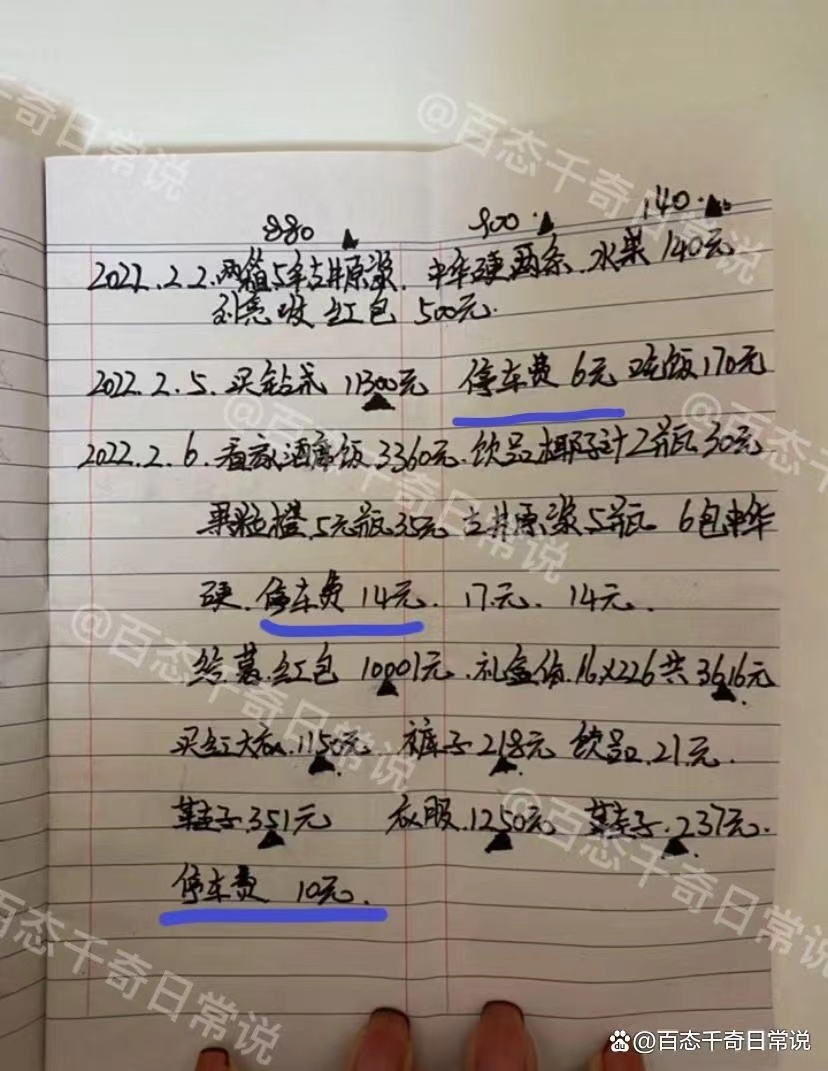 880 900 140
2022.2.2.两箱5年古井原浆.中华硬两条.水果140元
刘亮收红包500元.
2022.2.5.买钻戒11300元 停车费6元 吃饭170元
2022.2.6.看家酒席饭3360元.饮品椰子汁2瓶30元
果粒橙.5元瓶35元 古井原浆5瓶 6包中华
硬.停车费14元.17元.14元.
给慕.红包10001元.礼盒份.16X226共3616元
买红大衣.1150元 裤子218元 饮品.21元.
鞋子.351元 衣服.1250元 鞋子.237元.
停车费 10元.
@百态千奇日常说
@百态千奇日常说
@百态千奇日常说
@百态千奇日常说
@百态千奇日常说
du @百态千奇日常说